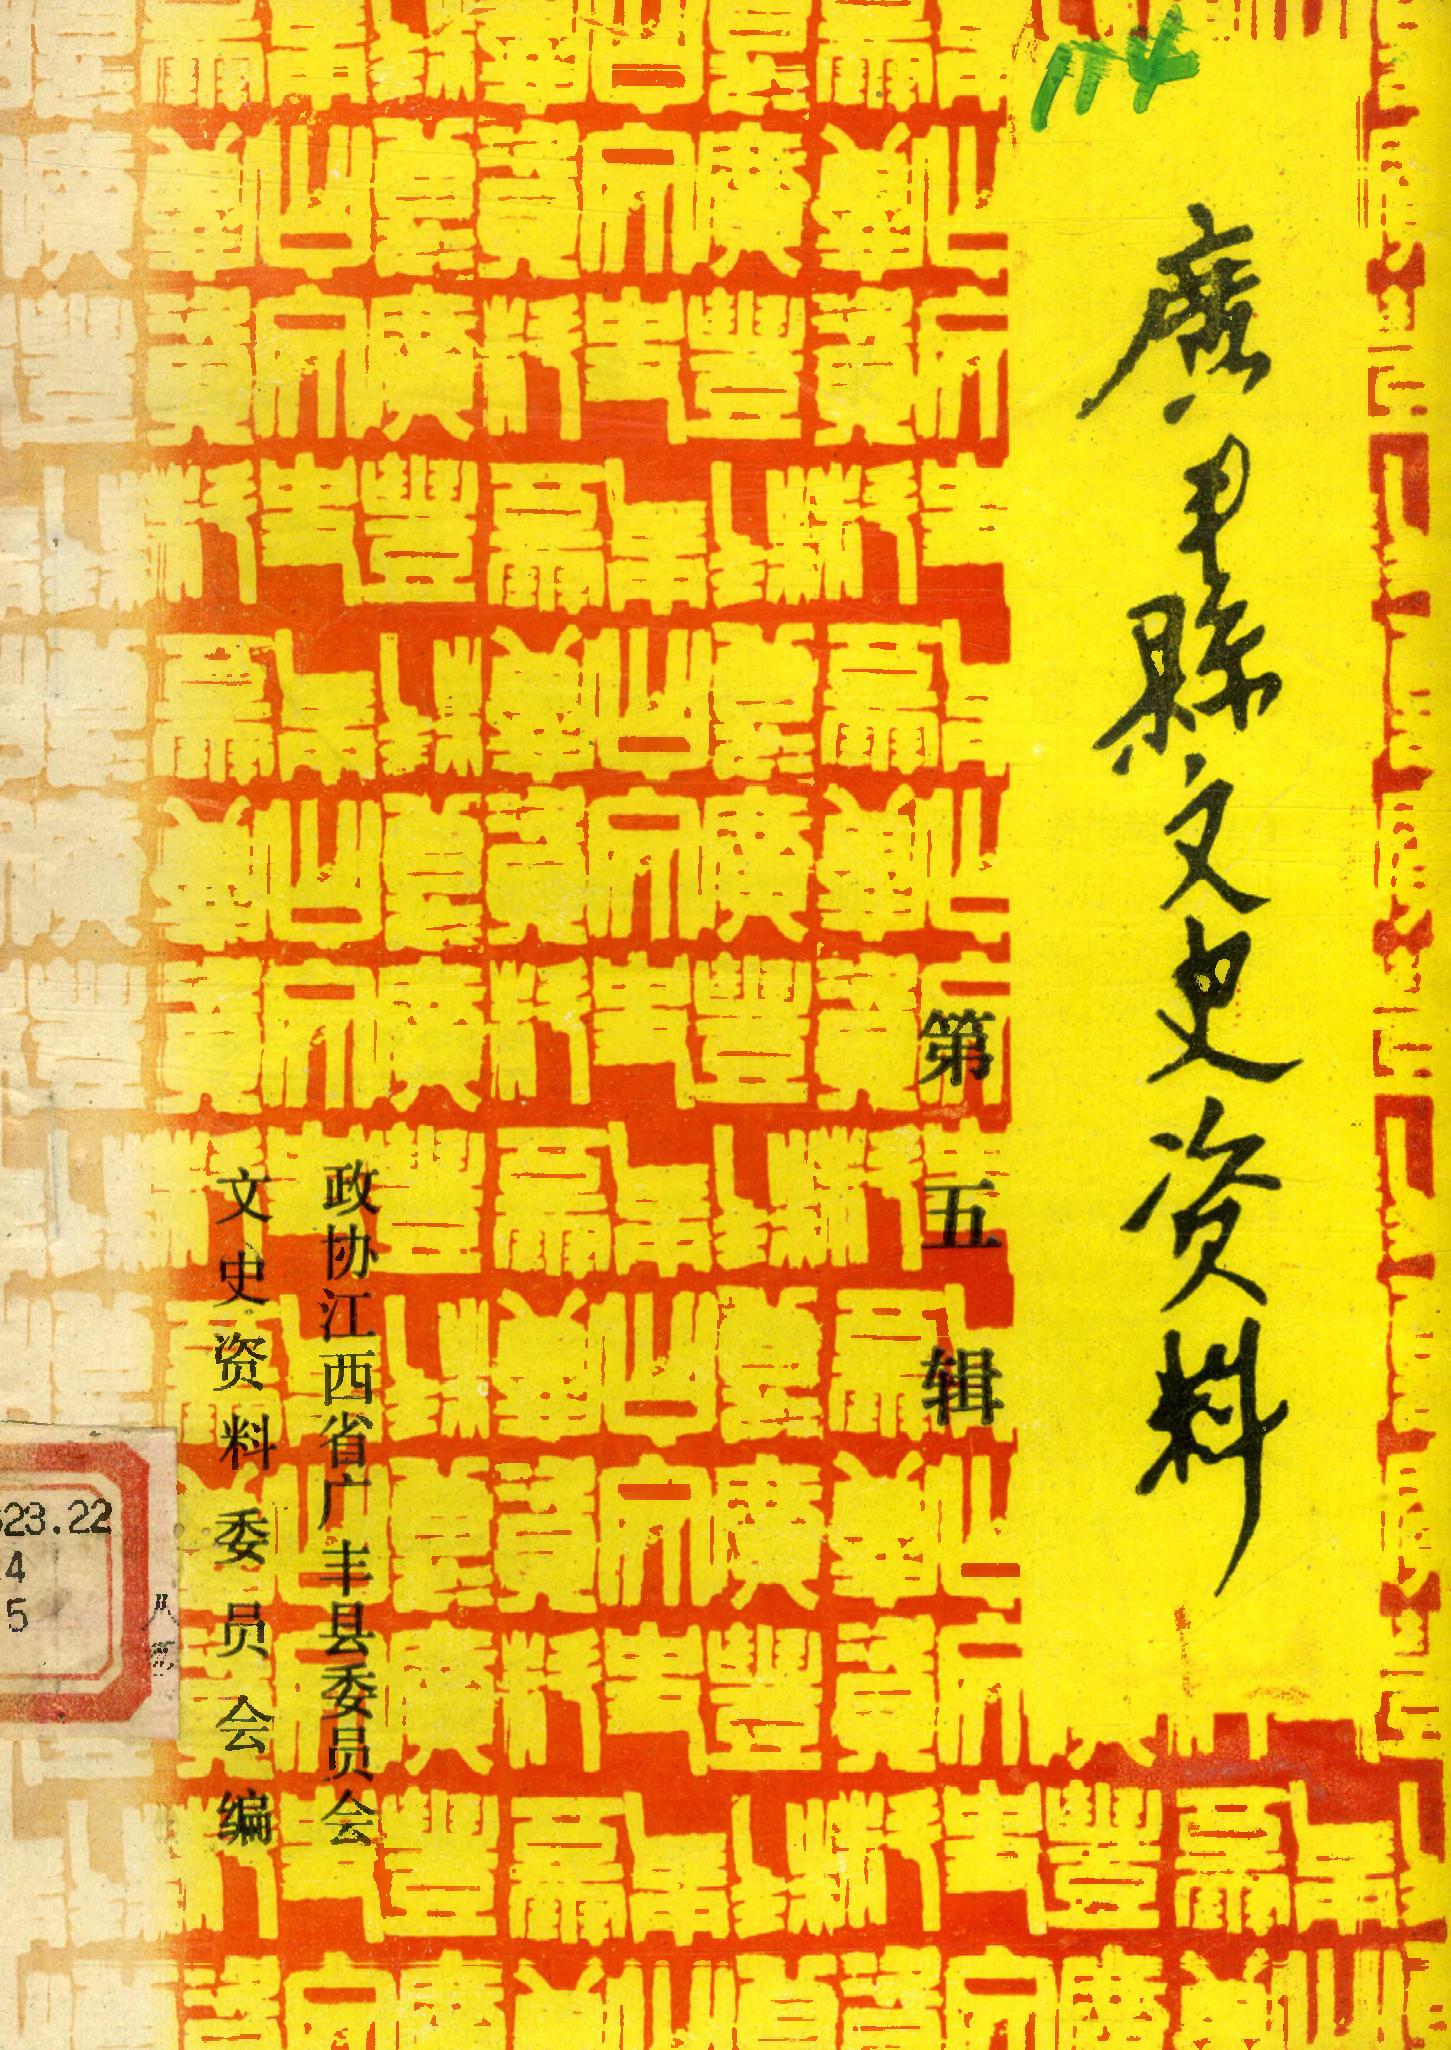 广丰县文史资料
第五辑
政协江西省广丰县委员会
文史资料委员会编
23.22
4
5